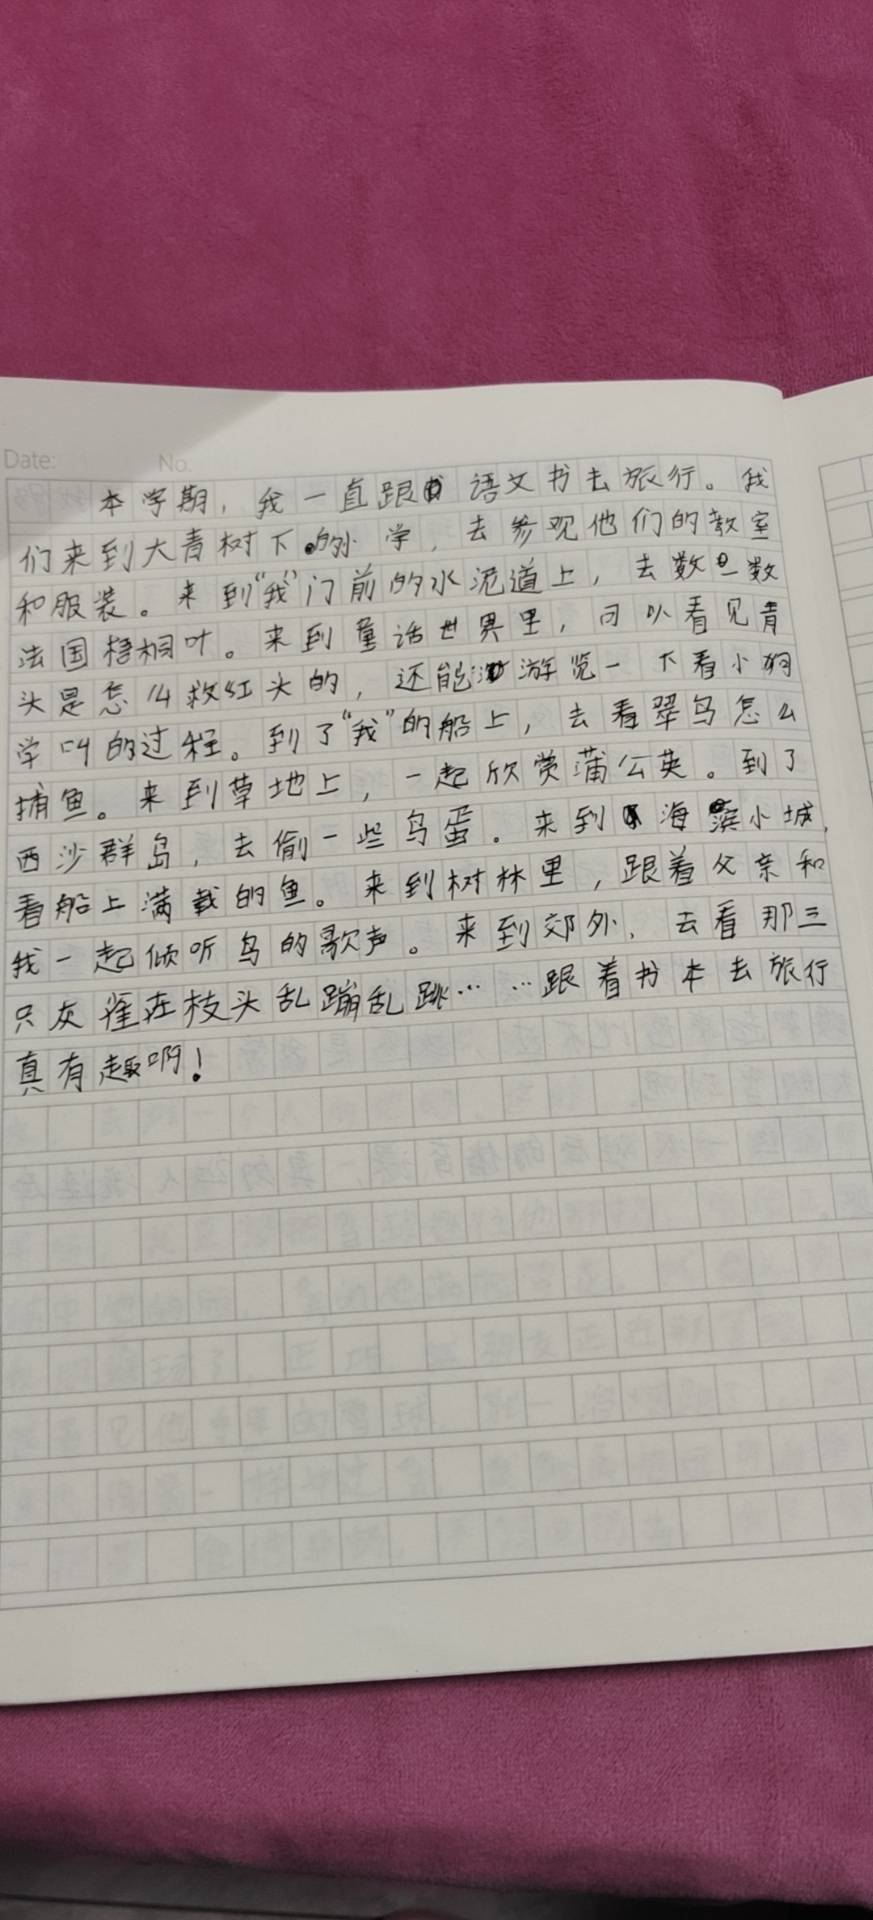 Date:
No.
本学期，我一直跟语文书去旅行。我
们来到大青树下的小学，去参观他们的教室
和服装。来到“我”门前的水泥道上，去数一数
法国梧桐叶。来到童话世界里，可以看见青
头是怎么救红头的，还能游览一下看小狗
学叫的过程。到了“我”的船上，去看翠鸟怎么
捕鱼。来到草地上，一起欣赏蒲公英。到了
西沙群岛，去偷一些鸟蛋。来到海滨小城，
看船上满载的鱼。来到树林里，跟着父亲和
我一起倾听鸟的歌声。来到郊外，去看那三
只灰雀在枝头乱蹦乱跳……跟着书本去旅行
真有趣啊！